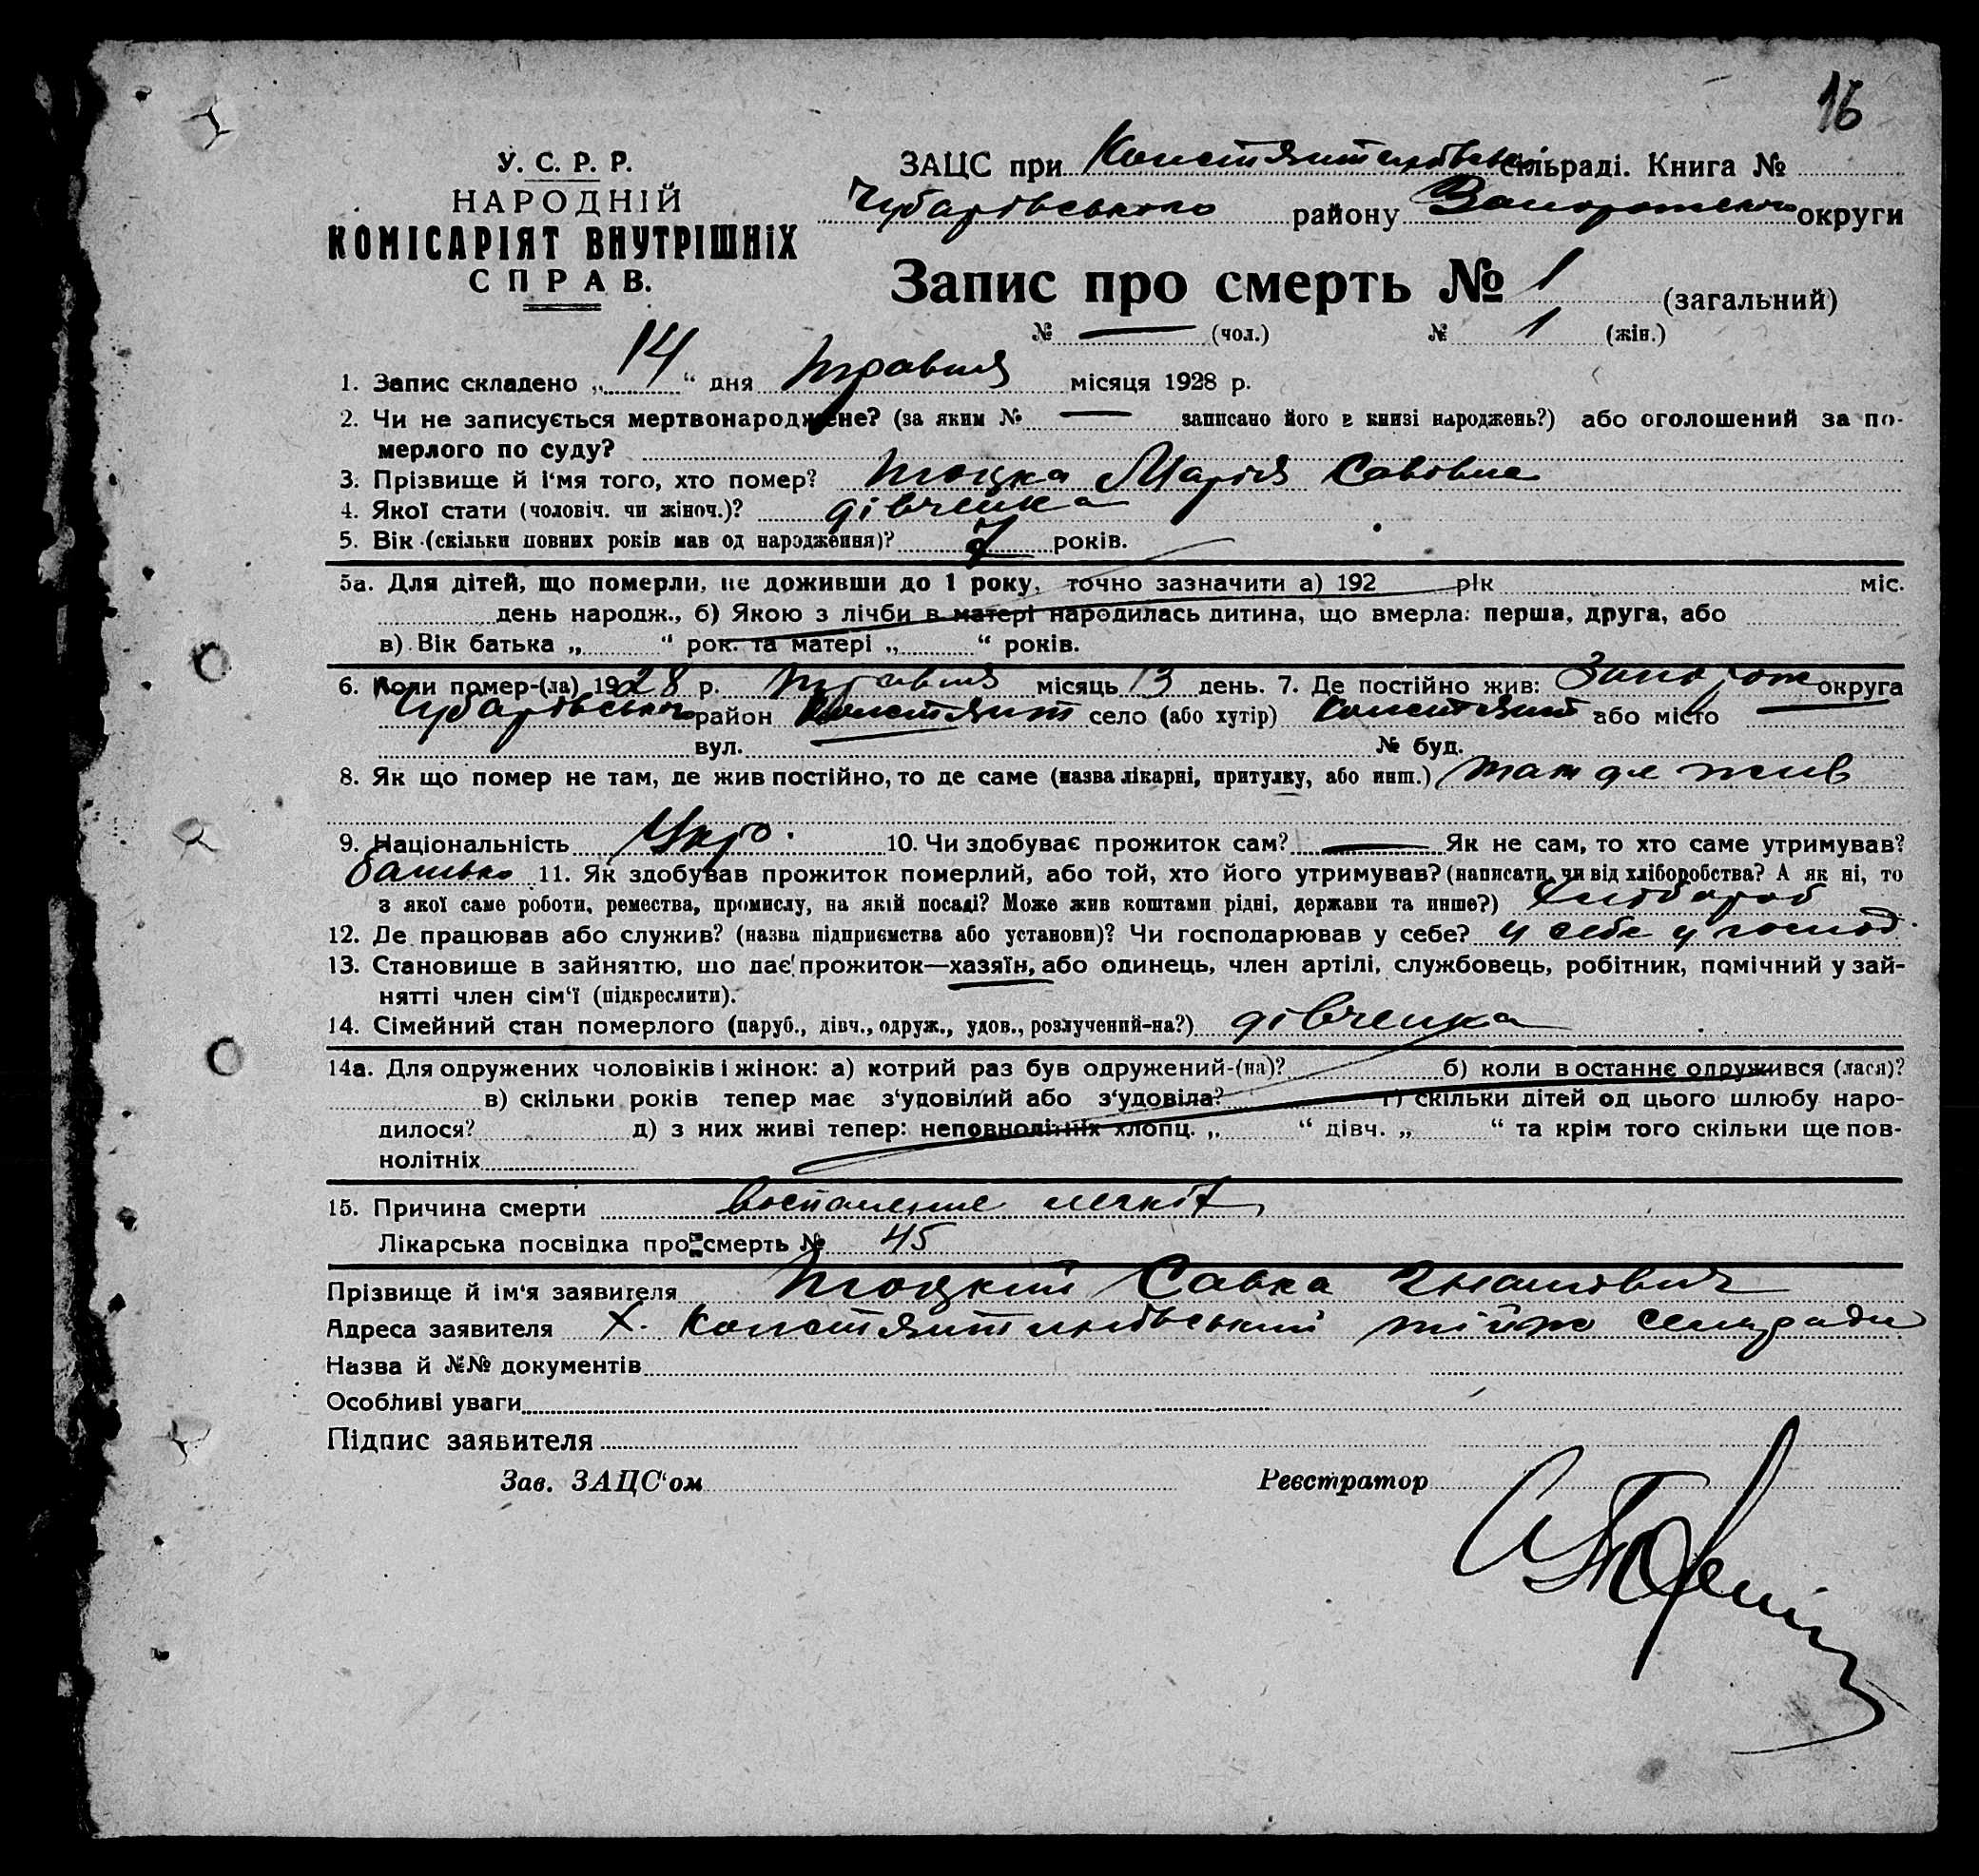 16
У. С. Р. Р.
НАРОДНІЙ
КОМІСАРІЯТ ВНУТРІШНІХ
СПРАВ.
ЗАЦС при Констянтинівськ сільраді. Книга №
Чубарівського району Запорожського округи
Запис про смерть № 1 (загальний)
№ — (чол.) № 1 (жін.)
1. Запис складено „ 14 “ дня травня місяця 1928 р.
2. Чи не записується мертвонароджене? (за яким № — записано його в книзі народжень?) або оголошений за по-
мерлого по суду?
3. Прізвище й і‘мя того, хто помер? Тоцка Марія Савівна
4. Якої стати (чоловіч. чи жіноч.)? дівченка
5. Вік (скільки повних років мав од народження)? років.
5а. Для дітей, що померли, не доживши до 1 року, точно зазначити а) 192 рік міс.
день народж., б) Якою з лічби в матері народилась дитина, що вмерла: перша, друга, або
в) Вік батька „ “ рок. та матері „ “ років.
6. Коли помер-(ла) 1928 р. травня місяць 13 день. 7. Де постійно жив: Запорож округа
Чубарівського район Констянт село (або хутір) Констянт або місто —
вул. № буд.
8. Як що помер не там, де жив постійно, то де саме (назва лікарні, притулку, або инш.) там де жив
9. Національність Укр. 10. Чи здобуває прожиток сам? — Як не сам, то хто саме утримував?
батько 11. Як здобував прожиток померлий, або той, хто його утримував? (написати, чи від хліборобства? А як ні, то
з якої саме роботи, ремества, промислу, на якій посаді? Може жив коштами рідні, держави та инше?) Хлібороб
12. Де працював або служив? (назва підприємства або установи)? Чи господарював у себе? у себе у господ.
13. Становище в зайняттю, що дає прожиток—хазяїн, або одинець, член артілі, службовець, робітник, помічний у зай-
нятті член сім‘ї (підкреслити).
14. Сімейний стан померлого (паруб., дівч., одруж., удов., розлучений-на?) дівченка
14а. Для одружених чоловіків і жінок: а) котрий раз був одружений-(на)? б) коли в останнє одружився (лася)?
в) скільки років тепер має з‘удовілий або з‘удовіла? г) скільки дітей од цього шлюбу наро-
дилося? д) з них живі тепер: неповнолітніх хлопц. „ “ дівч. „ “ та крім того скільки ще пов-
нолітніх
15. Причина смерти воспаление легкіх
Лікарська посвідка про смерть № 45
Прізвище й ім‘я заявителя Тоцкий Савка Гнатович
Адреса заявителя х. Констянтинівський тійж сельради
Назва й №№ документів
Особливі уваги
Підпис заявителя
Зав. ЗАЦС‘ом Реєстратор